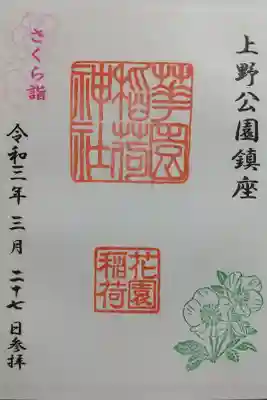 上野公園鎮座
華園
稲荷
神社
花園
稲荷
さくら詣
令和三年三月二十七日参拝